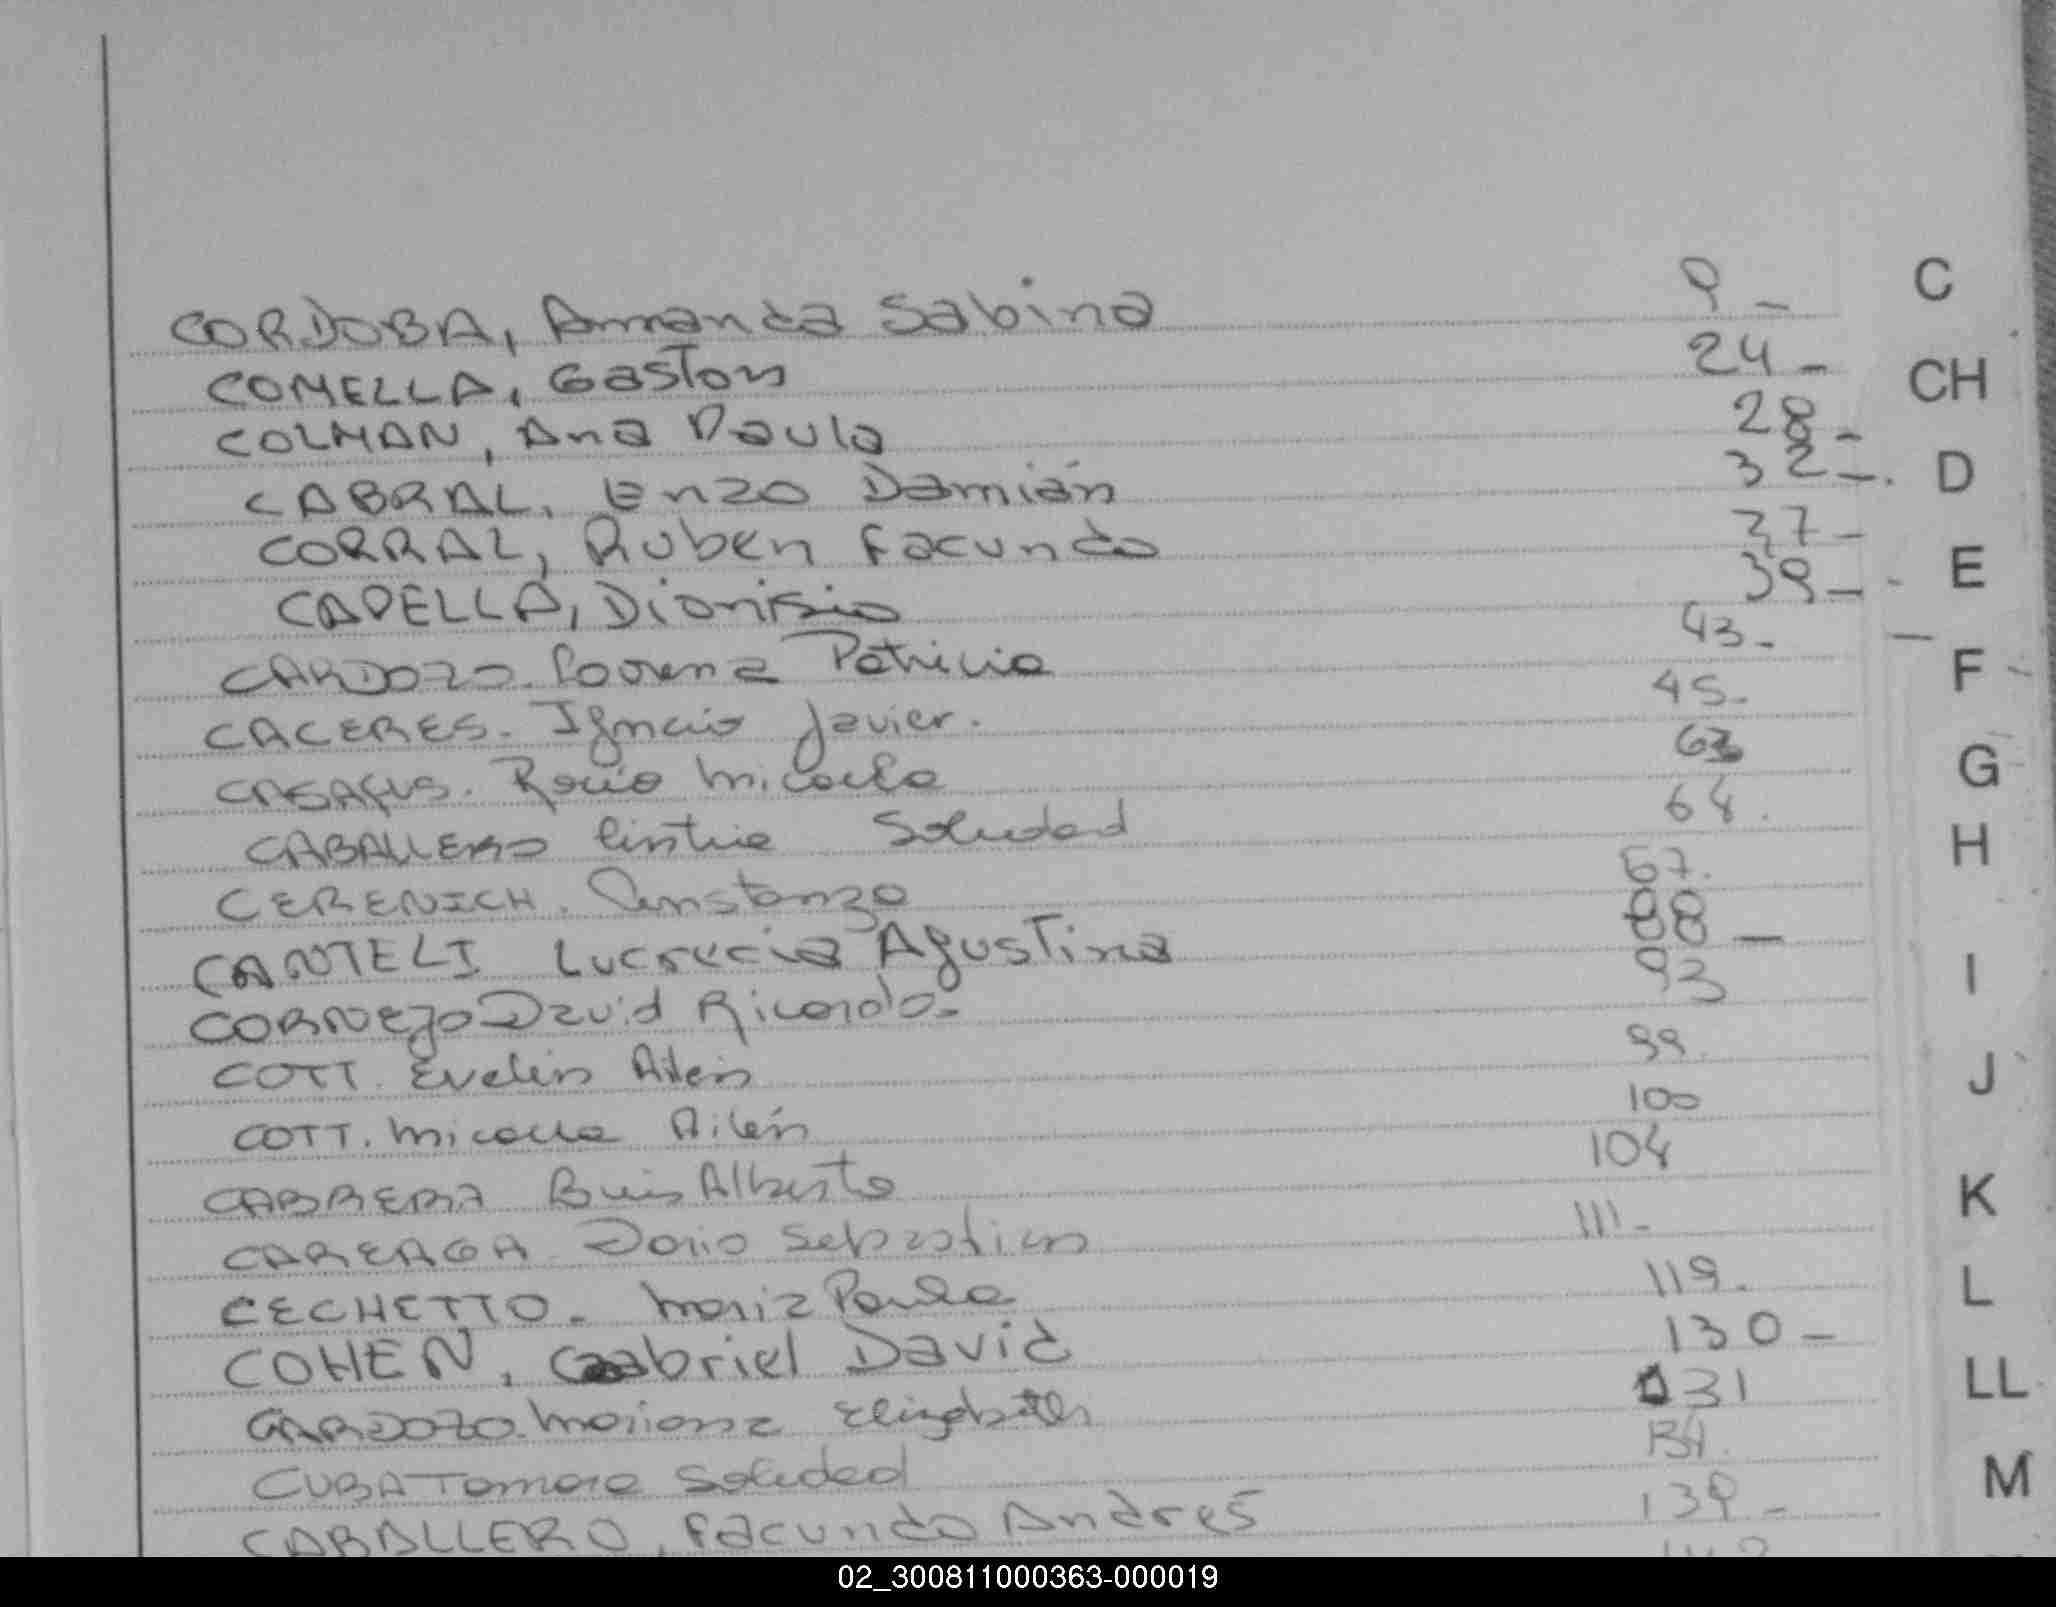 CORDOBA, Amanda Sabina 9 _
COMELLA, Gaston 24 _
COLMAN, Ana Paula 28 _
CABRAL, Enzo Damián 32 _.
CORRAL, Ruben Facundo 37 _
CAPELLA, Dionisio 39 _
CARDOZO. Lorena Patricia 43 -
CACERES. Ignacio Javier. 45 -
CASAFUS. Rocio Micaela 63
CABALLERO Cintia Soledad 64.
CERENICH. Constanza 67.
CANTELI Lucrecia Agustina 88 _
CORNEJO David Ricardo. 93
COTT. Evelin Ailen 99.
COTT. Micaela Ailén 100
CABRERA Luis Alberto 104
CAREAGA Dario Sebastian 111 -
CECHETTO. Maria Paula 119.
COHEN, Gabriel David 130 _
CARDOZO. Mariana Elizabeth 131
CUBA Tamara Soledad 134.
CABALLERO, Facundo Andrés 139 -
C
CH
D
E
F
G
H
I
J
K
L
LL
M
02_300811000363-000019